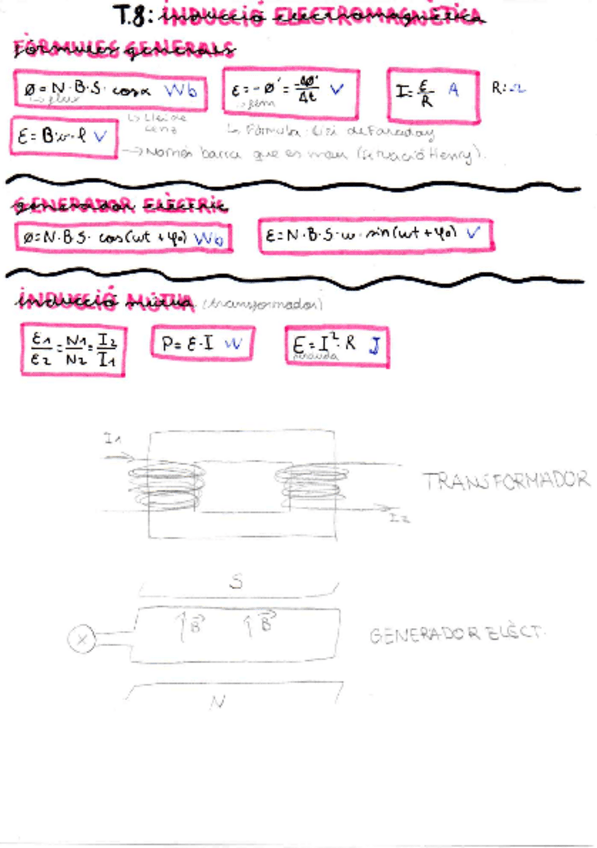 T.8: INDUCCIÓ ELECTROMAGNÈTICA
FÓRMULES GENERALS
Ø = N·B·S·cosα Wb ε = -Ø' = -ΔØ/Δt V I = ε/R A R: Ω
flux fem
↳ Llei de Lenz ↳ Fórmula Llei de Faraday
ε = B·v·l V → Només barra que es mou (situació Henry).
GENERADOR ELÈCTRIC
Ø=N·B·S·cos(ωt+φ0) Wb E=N·B·S·ω·sin(ωt+φ0) V
INDUCCIÓ MÚTUA (transformador)
ε1/ε2 = N1/N2 = I2/I1 P = ε·I W E = I²·R J
perduda
I1
TRANSFORMADOR
I2
S
B B
X GENERADOR ELÈCT.
N